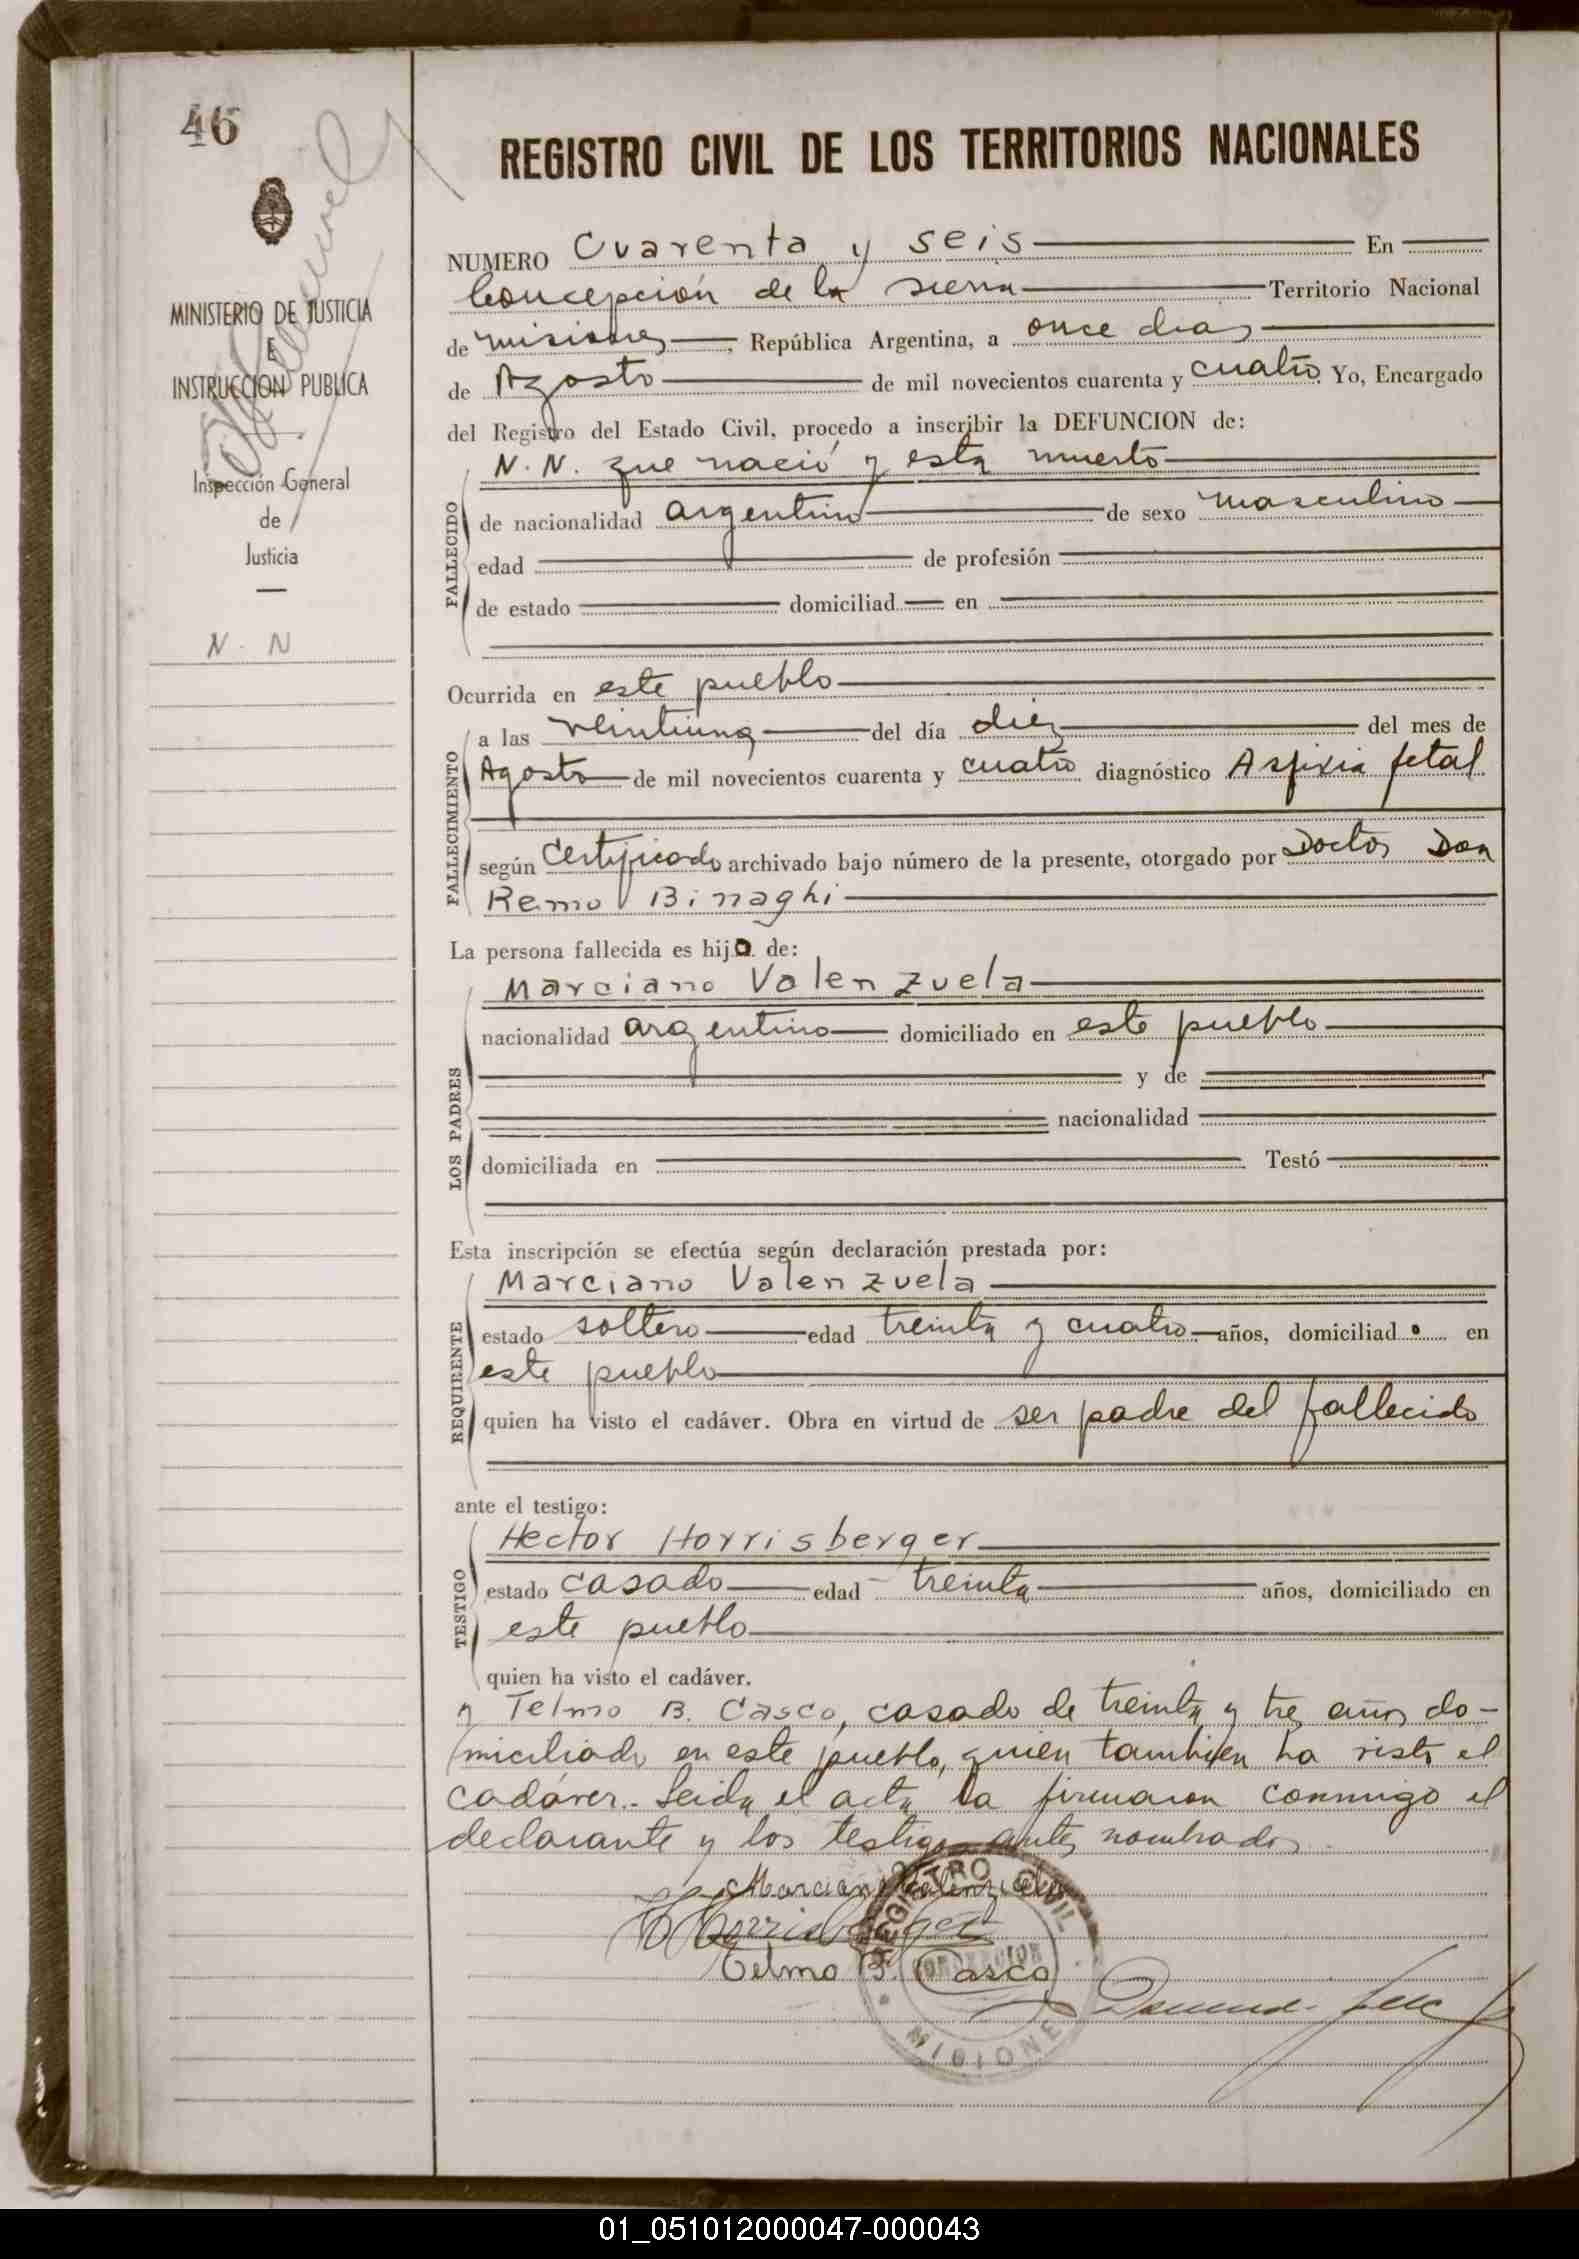 46
MINISTERIO DE JUSTICIA
E
INSTRUCCION PUBLICA
Inspección General
de
Justicia
N. N
REGISTRO CIVIL DE LOS TERRITORIOS NACIONALES
NUMERO Cuarenta y seis En
Concepción de la sierra Territorio Nacional
de misiones, República Argentina, a once dias
de Agosto de mil novecientos cuarenta y cuatro Yo, Encargado
del Registro del Estado Civil, procedo a inscribir la DEFUNCION de:
FALLECIDO
N. N. que nació y esta muerto
de nacionalidad argentino de sexo masculino
edad de profesión
de estado domiciliad en
Ocurrida en este pueblo
FALLECIMIENTO
a las veintiuna del día diez del mes de
Agosto de mil novecientos cuarenta y cuatro diagnóstico Asfixia fetal
según Certificado archivado bajo número de la presente, otorgado por Doctor Don
Remo Binaghi
La persona fallecida es hijo de:
LOS PADRES
Marciano Valenzuela
nacionalidad argentino domiciliado en este pueblo
y de
nacionalidad
domiciliada en Testó
Esta inscripción se efectúa según declaración prestada por:
REQUIRENTE
Marciano Valenzuela
estado soltero edad treinta y cuatro años, domiciliado en
este pueblo
quien ha visto el cadáver. Obra en virtud de ser padre del fallecido
ante el testigo:
TESTIGO
Hector Horrisberger
estado casado edad treinta años, domiciliado en
este pueblo
quien ha visto el cadáver.
y Telmo B. Casco, casado de treinta y tres años do-
miciliado en este pueblo, quien tambien ha visto el
cadáver.- Leida el acta la firmaron conmigo el
declarante y los testigos antes nombrados.
Marciano Valenzuela
H Horrisberger
Telmo B. Casco
REGISTRO CIVIL
MISIONES
01_051012000047-000043